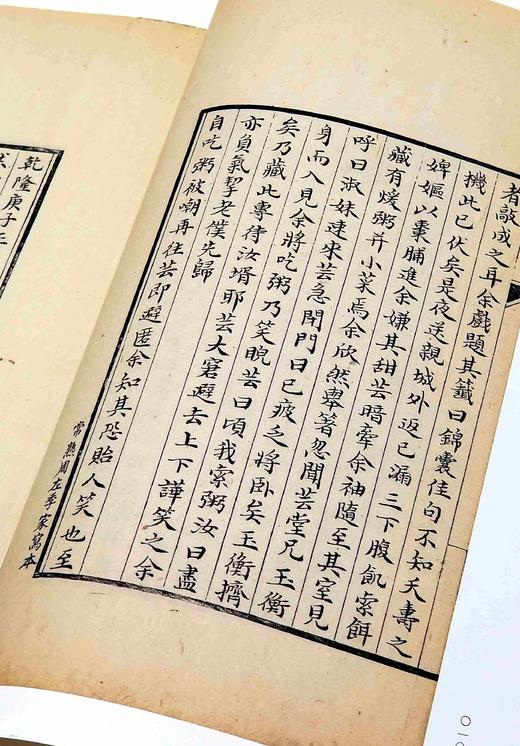 者敲成之耳余戲題其籤曰錦囊佳句不知夭壽之
機此已伏矣是夜送親城外返已漏三下腹飢索餌
婢嫗以棗脯進余嫌其甜芸暗牽余袖隨至其室見
藏有煖粥并小菜焉余欣然舉箸忽聞芸堂兄玉衡
呼曰淑妹速來芸急閉門曰已疲乏將臥矣玉衡擠
身而入見余將吃粥乃笑睨芸曰頃我索粥汝曰盡
矣乃藏此專待汝壻耶芸大窘避去上下譁笑之余
亦負氣挈老僕先歸
自吃粥被嘲再往芸即避匿余知其恐貽人笑也至
常熟周左季家寫本
乾隆庚子正